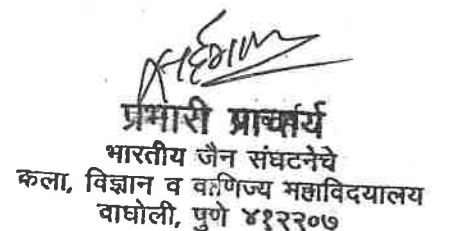 प्रभारी प्राचार्य
भारतीय जैन संघटनेचे
कला, विज्ञान व वाणिज्य महाविदयालय
वाघोली, पुणे ४१२२०७